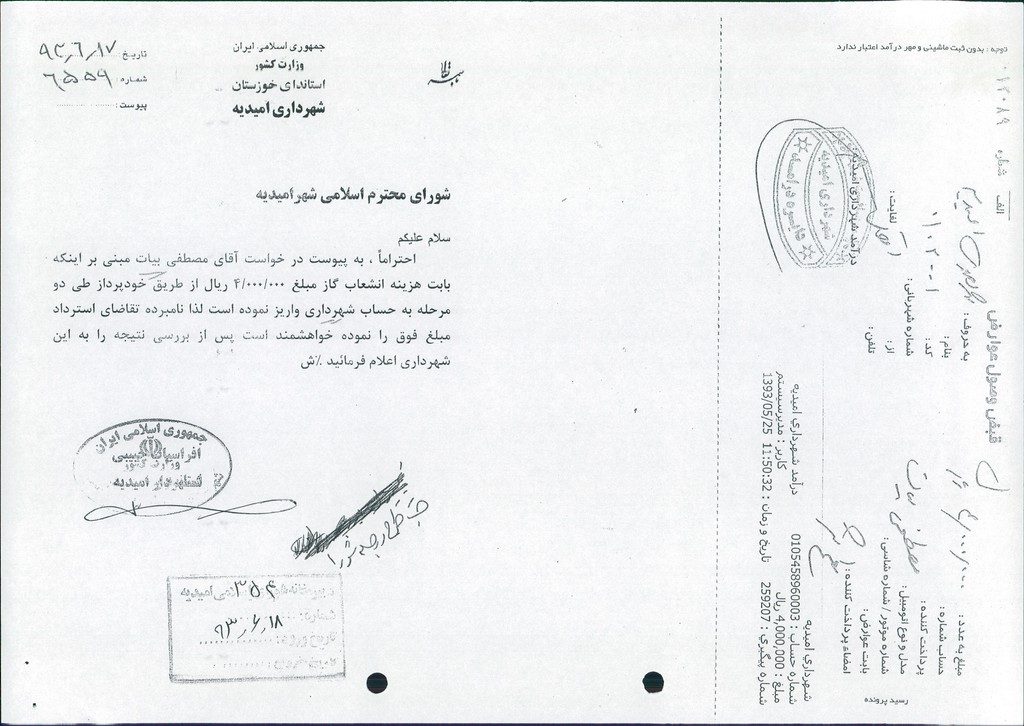 بسمه تعالی
جمهوری اسلامی ایران
وزارت کشور
استانداری خوزستان
شهرداری امیدیه
تاریخ: ۹۳٫۶٫۱۷
شماره: ۶۵۵۹
پیوست:
شورای محترم اسلامی شهر امیدیه
سلام علیکم
احتراماً ، به پیوست در خواست آقای مصطفی بیات مبنی بر اینکه
بابت هزینه انشعاب گاز مبلغ ۴/۰۰۰/۰۰۰ ریال از طریق خودپرداز طی دو
مرحله به حساب شهرداری واریز نموده است لذا نامبرده تقاضای استرداد
مبلغ فوق را نموده خواهشمند است پس از بررسی نتیجه را به این
شهرداری اعلام فرمائید ٪ش
جمهوری اسلامی ایران
وزارت کشور
شهردار امیدیه
۳۵۴
۹۳٫۶٫۱۸
توجه : بدون ثبت ماشینی و مهر درآمد اعتبار ندارد
قبض وصول عوارض
الف
شماره ۰۱۲۰۸۹
مبلغ به عدد: ۴/۰۰۰/۰۰۰
به حروف:
حساب شماره:
بنام:
کد:
پرداخت کننده: مصطفی بیات
شماره شهربانی:
مدل و نوع اتومبیل:
شماره موتور / شماره شاسی:
از:
لغایت:
بابت عوارض:
تلفن:
امضاء پرداخت کننده:
درآمد شهرداری امیدیه
شهرداری امیدیه
درآمد شهرداري اميديه
کاربر : مدیرسیستم
تاریخ و زمان : 1393/05/25 11:50:32
شهرداري اميديه
شماره حساب : 0105458960003
مبلغ : 4,000,000 ریال
شماره پیگیری : 259207
رسید پرونده